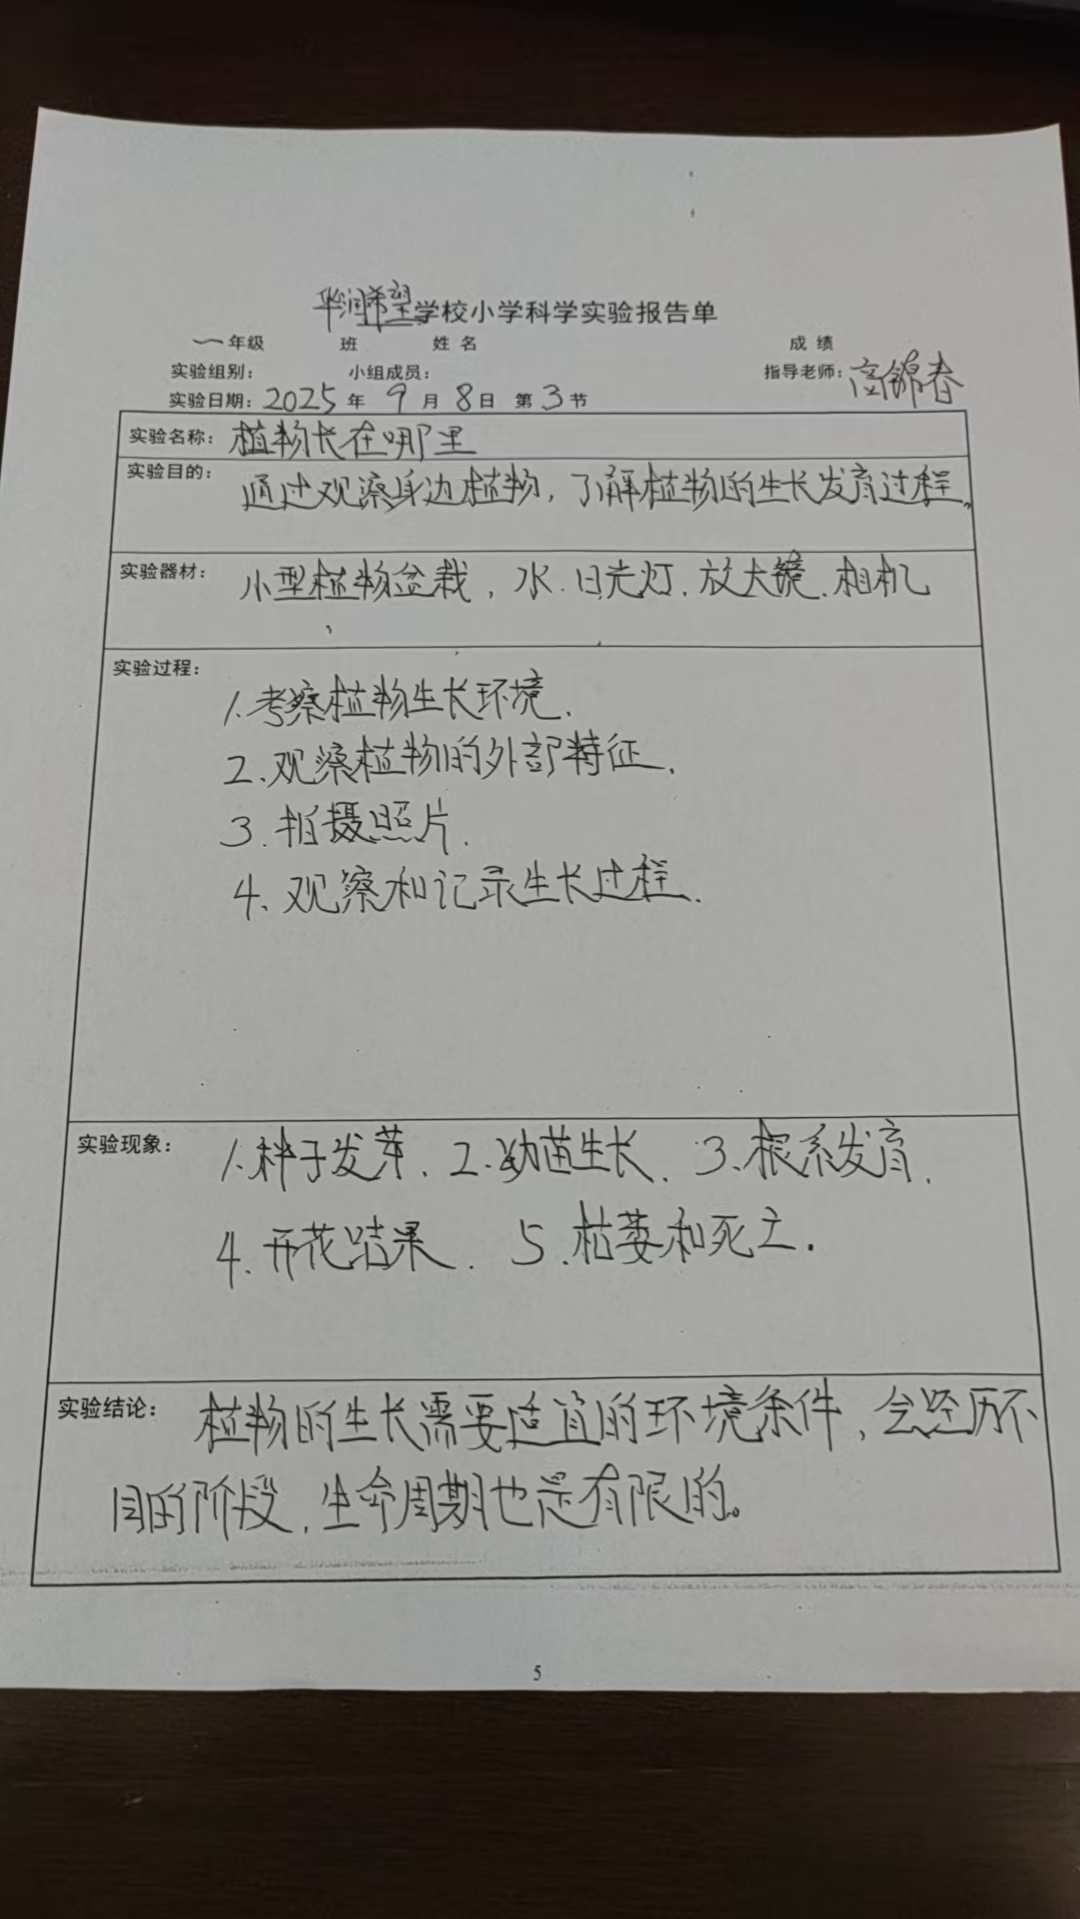 华润希望学校小学科学实验报告单
一年级 班 姓名 成绩
实验组别： 小组成员： 指导老师：高锦春
实验日期：2025年9月8日 第3节
实验名称：植物长在哪里
实验目的：通过观察身边植物，了解植物的生长发育过程。
实验器材：小型植物盆栽，水.日光灯.放大镜.相机
实验过程：
1.考察植物生长环境.
2.观察植物的外部特征.
3.拍摄照片.
4.观察和记录生长过程.
实验现象：1.种子发芽.2.幼苗生长.3.根系发育.
4.开花结果.5.枯萎和死亡.
实验结论：植物的生长需要适宜的环境条件，会经历不
同的阶段，生命周期也是有限的。
5